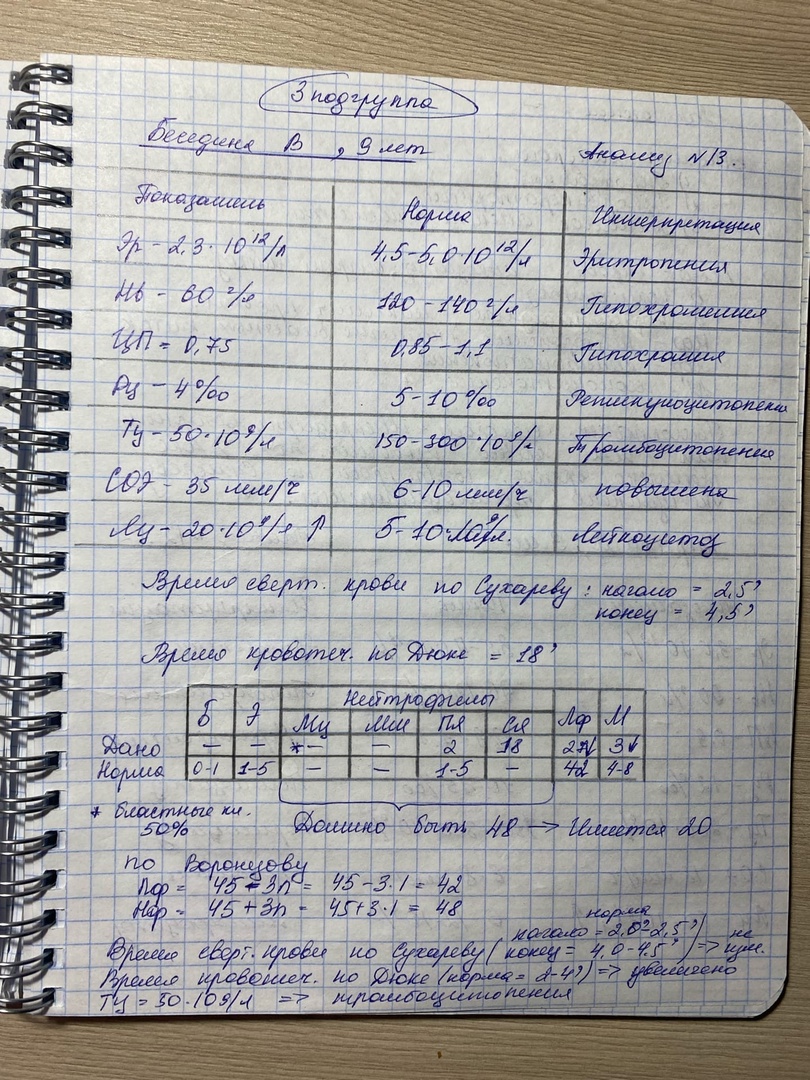 3 подгруппа
Беседина В , 9 лет Анализ №13.
Показатель Норма Интерпретация
Эр - 2,3 · 10¹²/л 4,5-5,0·10¹²/л Эритропения
Нв - 60 г/л 120 - 140 г/л Гипохромемия
ЦП = 0,75 0,85 - 1,1 Гипохромия
Рц - 4‰ 5-10‰ Ретикулоцитопения
Тц - 50·10⁹/л 150-300·10⁹/л Тромбоцитопения
СОЭ - 35 мм/ч 6-10 мм/ч повышена
Лц - 20·10⁹/л ↑ 5-10·10⁹/л. Лейкоцитоз
Время сверт. крови по Сухареву : начало = 2,5'
конец = 4,5'
Время кровотеч. по Дюке = 18'
Б Э Нейтрофилы Лф М
Мц Мм Пя Ся
Дано — — *— — 2 18 27↓ 3↓
Норма 0-1 1-5 — — 1-5 — 42 4-8
* бластные кл.
50% Должно быть 48 → Имеется 20
по Воронцову
Лф = 45 - 3n = 45 - 3·1 = 42
Нф = 45 + 3n = 45+3·1 = 48
норма
Время сверт. крови по Сухареву ( начало = 2,0-2,5'
конец = 4,0-4,5' ) => не изм.
Время кровотеч. по Дюке (норма = 2-4') => увеличено
Тц = 30·109/л => тромбоцитопения